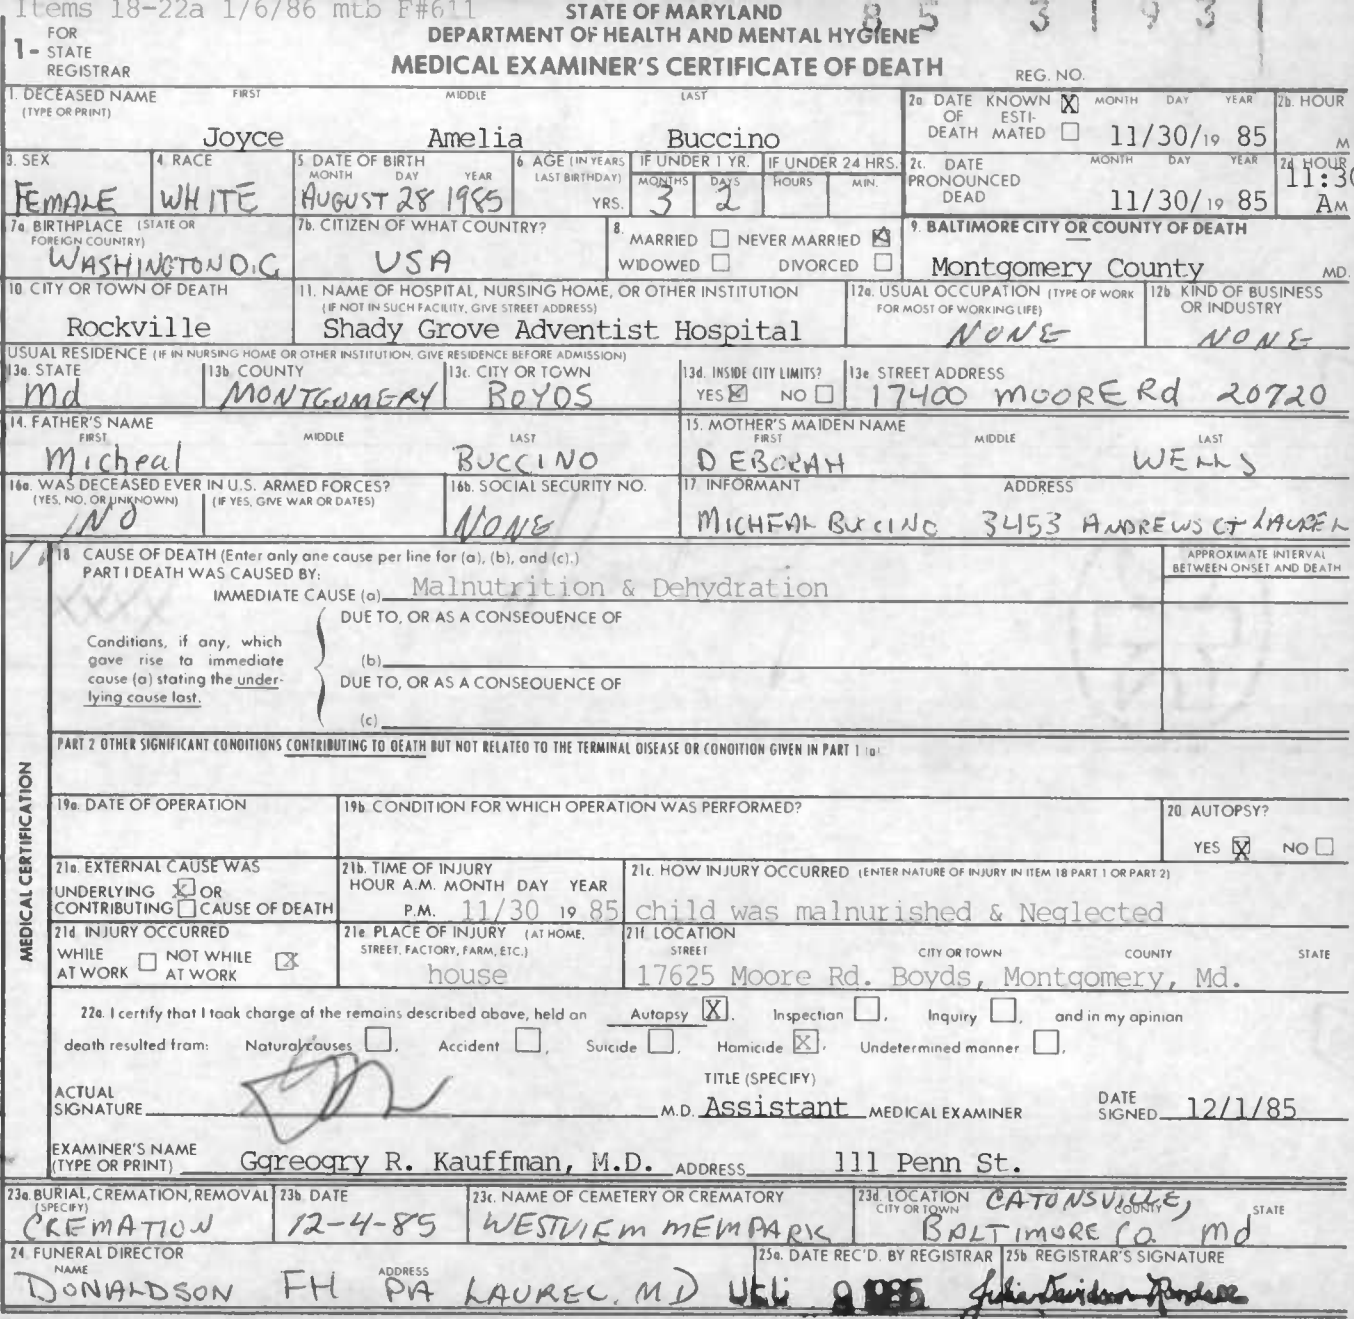 Items 18-22a 1/6/86 mtb F#611
STATE OF MARYLAND
85 31931
1- FOR STATE REGISTRAR
DEPARTMENT OF HEALTH AND MENTAL HYGIENE
MEDICAL EXAMINER'S CERTIFICATE OF DEATH
REG. NO.
1. DECEASED NAME (TYPE OR PRINT) FIRST MIDDLE LAST
Joyce Amelia Buccino
2a. DATE OF DEATH KNOWN X ESTIMATED MONTH DAY YEAR
11/30/19 85
2b. HOUR M
3. SEX
FEMALE
4. RACE
WHITE
5. DATE OF BIRTH MONTH DAY YEAR
AUGUST 28 1985
6. AGE (IN YEARS LAST BIRTHDAY) YRS.
IF UNDER 1 YR. MONTHS DAYS
3 2
IF UNDER 24 HRS. HOURS MIN.
2c. DATE PRONOUNCED DEAD MONTH DAY YEAR
11/30/19 85
2d HOUR
11:30
AM
7a. BIRTHPLACE (STATE OR FOREIGN COUNTRY)
WASHINGTON D.C
7b. CITIZEN OF WHAT COUNTRY?
USA
8. MARRIED NEVER MARRIED X
WIDOWED DIVORCED
9. BALTIMORE CITY OR COUNTY OF DEATH
Montgomery County MD.
10. CITY OR TOWN OF DEATH
Rockville
11. NAME OF HOSPITAL, NURSING HOME, OR OTHER INSTITUTION
(IF NOT IN SUCH FACILITY, GIVE STREET ADDRESS)
Shady Grove Adventist Hospital
12a. USUAL OCCUPATION (TYPE OF WORK FOR MOST OF WORKING LIFE)
NONE
12b. KIND OF BUSINESS OR INDUSTRY
NONE
USUAL RESIDENCE (IF IN NURSING HOME OR OTHER INSTITUTION, GIVE RESIDENCE BEFORE ADMISSION)
13a. STATE
Md
13b. COUNTY
MONTGOMERY
13c. CITY OR TOWN
BOYDS
13d. INSIDE CITY LIMITS?
YES X NO
13e. STREET ADDRESS
17400 MOORE Rd 20720
14. FATHER'S NAME FIRST MIDDLE LAST
Micheal BUCCINO
15. MOTHER'S MAIDEN NAME FIRST MIDDLE LAST
DEBORAH WELLS
16a. WAS DECEASED EVER IN U.S. ARMED FORCES?
(YES, NO, OR UNKNOWN) (IF YES, GIVE WAR OR DATES)
NO
16b. SOCIAL SECURITY NO.
NONE
17. INFORMANT ADDRESS
MICHEAL BUCCINO 3453 ANDREWS CT LAUREL
18 CAUSE OF DEATH (Enter only one cause per line for (a), (b), and (c).)
APPROXIMATE INTERVAL BETWEEN ONSET AND DEATH
PART I DEATH WAS CAUSED BY:
IMMEDIATE CAUSE (a) Malnutrition & Dehydration
DUE TO, OR AS A CONSEQUENCE OF
Conditions, if any, which gave rise to immediate cause (a) stating the underlying cause last.
(b)
DUE TO, OR AS A CONSEQUENCE OF
(c)
PART 2 OTHER SIGNIFICANT CONDITIONS CONTRIBUTING TO DEATH BUT NOT RELATED TO THE TERMINAL DISEASE OR CONDITION GIVEN IN PART 1 (a)
MEDICAL CERTIFICATION
19a. DATE OF OPERATION
19b. CONDITION FOR WHICH OPERATION WAS PERFORMED?
20. AUTOPSY?
YES X NO
21a. EXTERNAL CAUSE WAS
UNDERLYING X OR
CONTRIBUTING CAUSE OF DEATH
21b. TIME OF INJURY
HOUR A.M. MONTH DAY YEAR
P.M. 11/30 19 85
21c. HOW INJURY OCCURRED (ENTER NATURE OF INJURY IN ITEM 18 PART 1 OR PART 2)
child was malnurished & Neglected
21d. INJURY OCCURRED
WHILE AT WORK NOT WHILE AT WORK X
21e. PLACE OF INJURY (AT HOME, STREET, FACTORY, FARM, ETC.)
house
21f. LOCATION STREET CITY OR TOWN COUNTY STATE
17625 Moore Rd. Boyds, Montgomery, Md.
22a. I certify that I took charge of the remains described above, held an Autopsy X, Inspection, Inquiry, and in my opinion
death resulted from: Natural causes, Accident, Suicide, Homicide X, Undetermined manner,
ACTUAL SIGNATURE M.D.
TITLE (SPECIFY)
Assistant MEDICAL EXAMINER
DATE SIGNED 12/1/85
EXAMINER'S NAME (TYPE OR PRINT) Gqreogry R. Kauffman, M.D. ADDRESS 111 Penn St.
23a. BURIAL, CREMATION, REMOVAL (SPECIFY)
CREMATION
23b. DATE
12-4-85
23c. NAME OF CEMETERY OR CREMATORY
WESTVIEM MEMPARK
23d. LOCATION CITY OR TOWN COUNTY STATE
CATONSVILLE,
BALTIMORE CO. Md
24. FUNERAL DIRECTOR
NAME ADDRESS
DONALDSON FH PA LAUREL, MD
25a. DATE REC'D. BY REGISTRAR
25b. REGISTRAR'S SIGNATURE
Julia Davidson-Randall